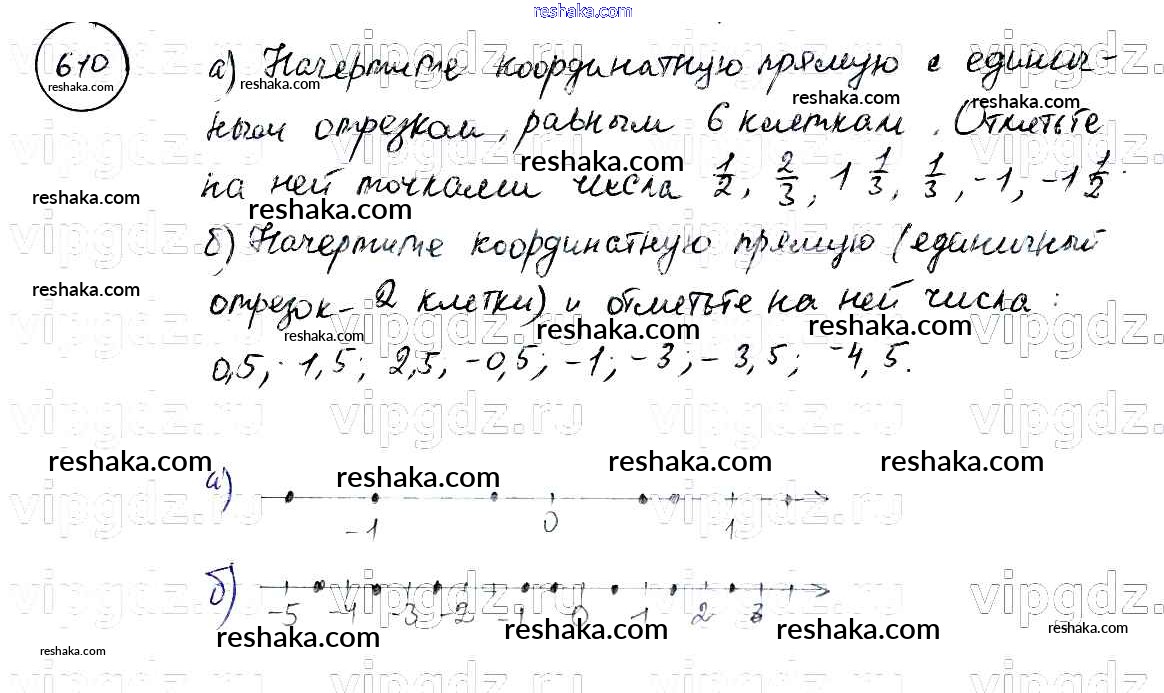 reshaka.com
610
reshaka.com
а) Начертите координатную прямую с единич-
reshaka.com
reshaka.com
reshaka.com
ным отрезком, равным 6 клеткам. Отметьте
reshaka.com
на ней точками числа 1/2, 2/3, 1 1/3, 1/3, -1, -1 1/2.
reshaka.com
reshaka.com
б) Начертите координатную прямую (единичный
reshaka.com
отрезок - 2 клетки) и отметьте на ней числа:
reshaka.com
reshaka.com
reshaka.com
0,5; 1,5; 2,5, -0,5; -1; -3; -3,5; -4,5.
vipgdz.ru
reshaka.com
reshaka.com
reshaka.com
reshaka.com
а)
-1 0 1
б)
-5 -4 -3 -2 -1 0 1 2 3
reshaka.com
reshaka.com
reshaka.com
reshaka.com
reshaka.com